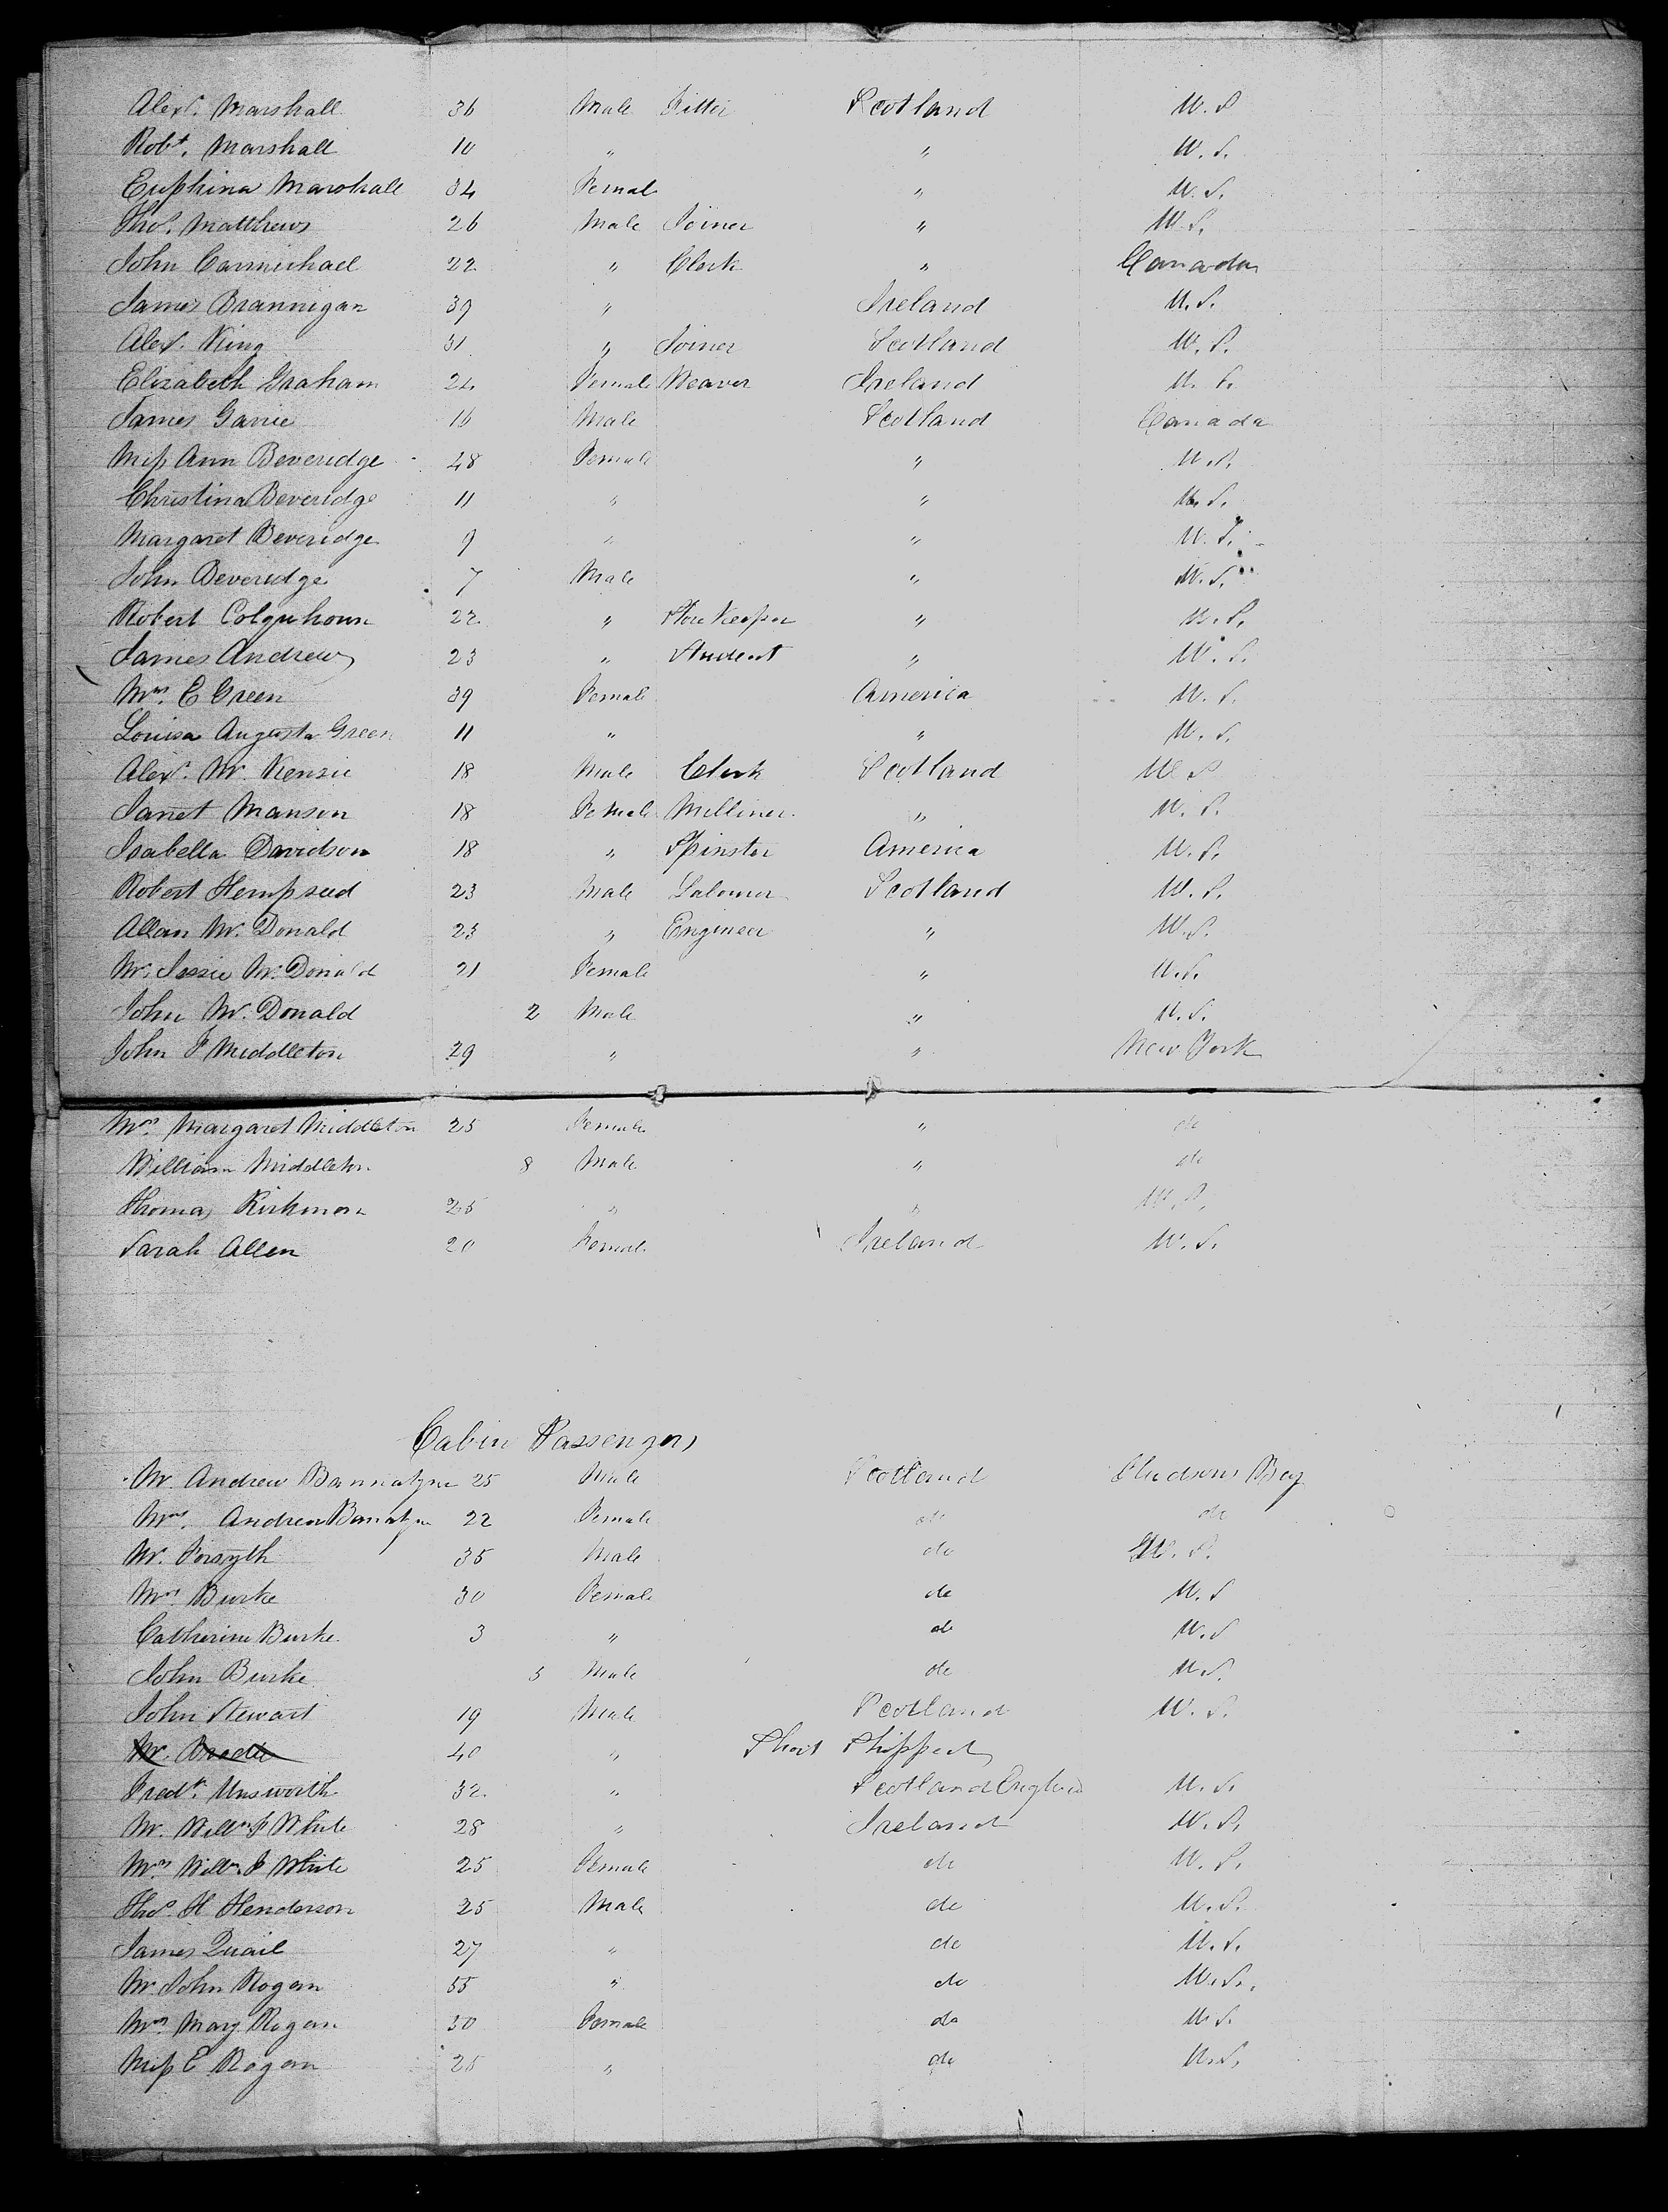 Alexr. Marshall 36 Male Fitter Scotland U.S
Robt. Marshall 10 " " U.S.
Euphina Marshall 34 Femal " U.S.
Thos. Matthews 26 Male Joiner " U.S.
John Carmichael 22 " Clerk " Canada
James Brannigan 39 " Ireland U.S.
Alexr. King 31 " Joiner Scotland U.S.
Elizabeth Graham 24 Female Weaver Ireland U.S.
James Garrie 16 Male Scotland Canada
Miss Ann Beveridge 48 Female " U.S.
Christina Beveridge 11 " " U.S.
Margaret Beveridge 9 " " U.S.
John Beveridge 7 Male " U.S.
Robert Colquhoun 22 " Store Keeper " U.S.
James Andrew 23 " Student " U.S.
Mrs. E Green 39 Female America U.S.
Louisa Augusta Green 11 " " U.S.
Alexr. Mc. Kensie 18 Male Clerk Scotland U S
Janet Manson 18 Female Milliner " U.S.
Isabella Davidson 18 " Spinster America U.S.
Robert Hempseed 23 Male Labourer Scotland U.S.
Allan Mc. Donald 23 " Engineer " U.S.
Mrs. Jessie Mc. Donald 21 Female " U.S.
John Mc. Donald 2 Male " U.S.
John P Middleton 29 " " New York
Mrs. Margaret Middleton 25 Female " do
William Middleton 8 Male " do
Thomas Kirkmore 25 " " U.S.
Sarah Allen 20 Female Ireland U.S.
Cabin Passengers
Mr. Andrew Bannatyne 25 Male Scotland Hudsons Bay
Mrs. Andrew Bannatyne 22 Female do do
Mr. Forsyth 35 Male do U.S.
Mrs. Burke 30 Female do U.S
Catherine Burke 3 " do U.S
John Burke 5 Male do U.S.
John Stewart 19 Male Scotland U.S.
Mr. 40 " Short Shipped
Fredk. Unsworth 32 " Scotland England U.S.
Mr. Willm. J White 28 " Ireland U.S.
Mrs Willm. J White 25 Female do U.S.
Thos. H Henderson 25 Male do U.S.
James Quail 27 " do U.S.
Mr. John Rogan 55 " do U.S.
Mrs. Mary Rogan 50 Female do U.S.
Miss E Rogan 25 " do U.S.